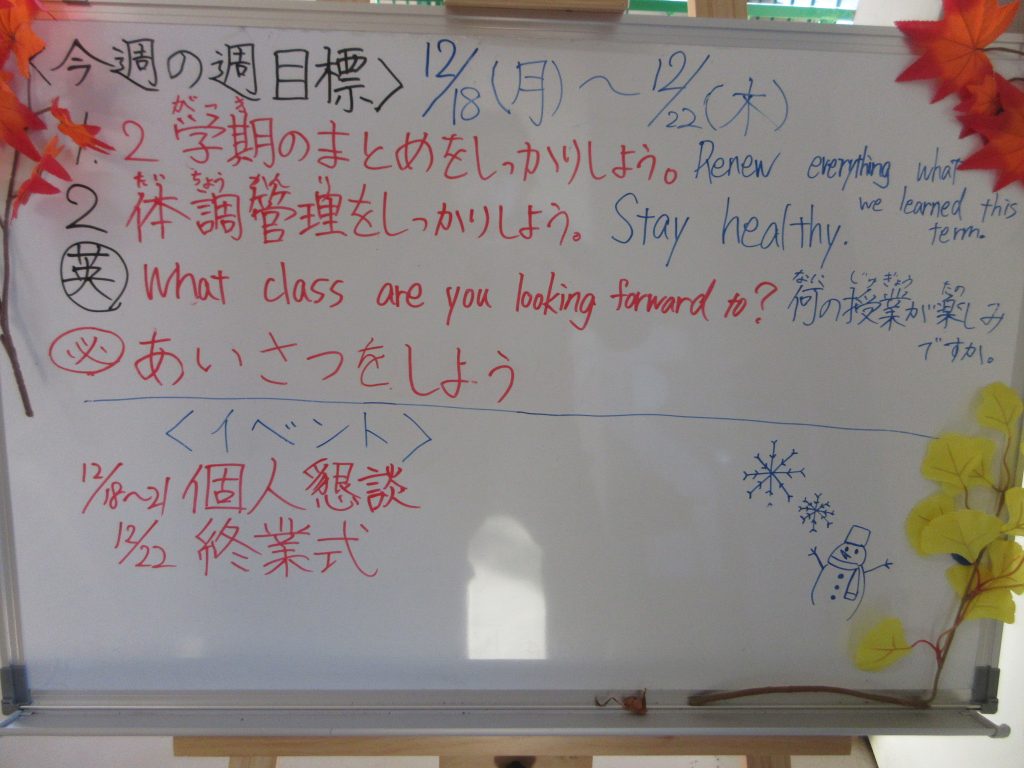 <今週の週目標> 12/18(月)～12/22(木)
1. 2学期のまとめをしっかりしよう。 Renew everything what we learned this term.
がっき
2 体調管理をしっかりしよう。 Stay healthy.
たいちょうかんり
英 What class are you looking forward to? 何の授業が楽しみですか。
なに じゅぎょう たの
必 あいさつをしよう
<イベント>
12/18～21 個人懇談
12/22 終業式